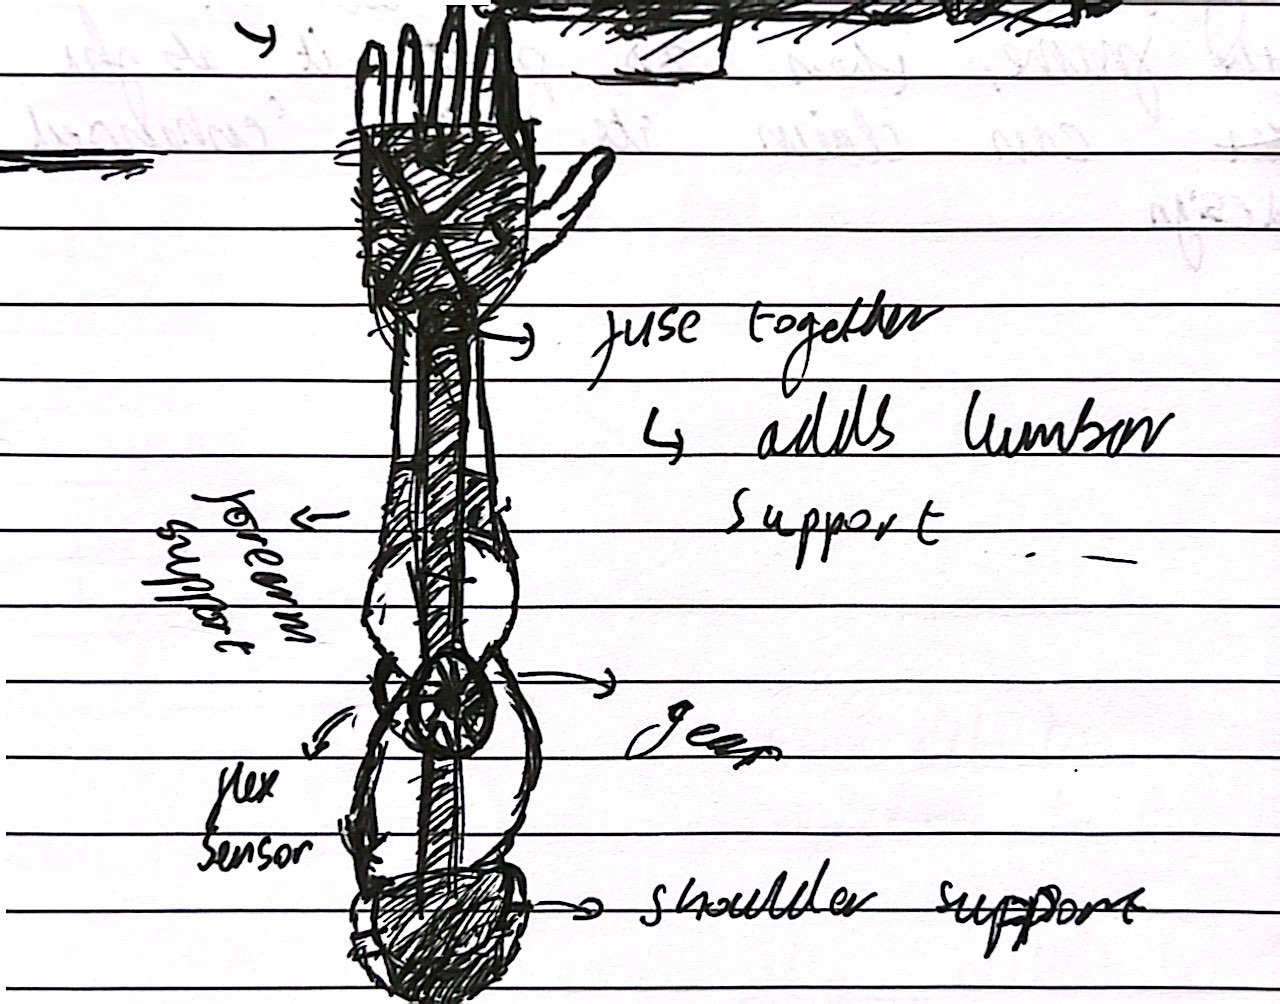 fuse together
↳ adds lumbar
support
forearm
support
gear
flex
sensor
shoulder support